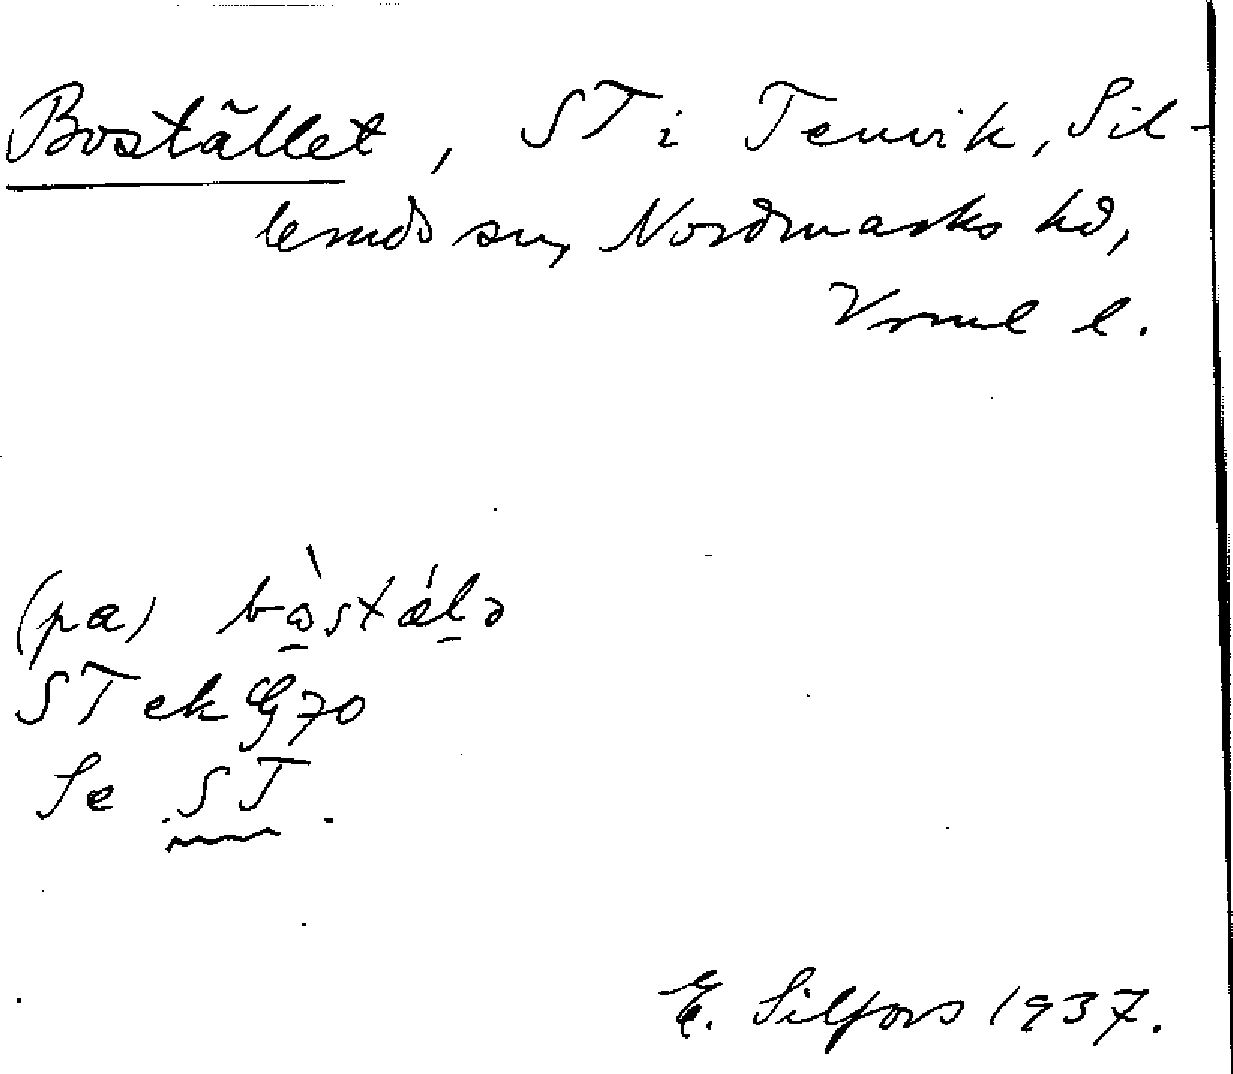 Bostället, ST i Tenvik, Sil-
leruds sn, Nordmarks hd,
Vrml l.
(pa) bòstálə
ST ek G70
Se ST.
E. Silfors 1937.